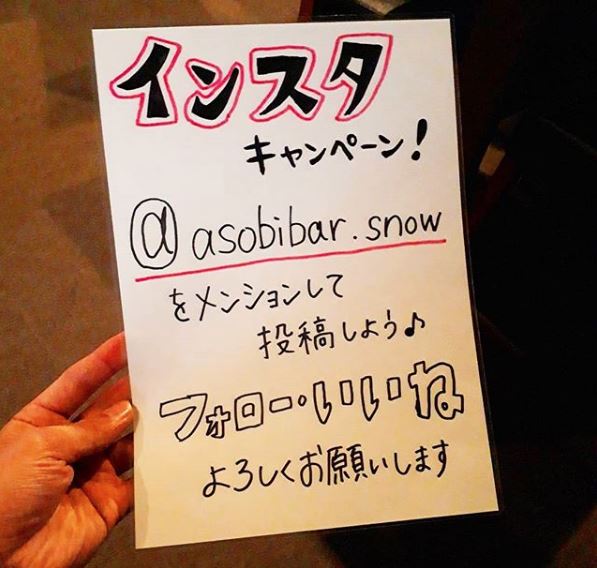 インスタ
キャンペーン!
@asobibar.snow
をメンションして
投稿しよう♪
フォロー・いいね
よろしくお願いします